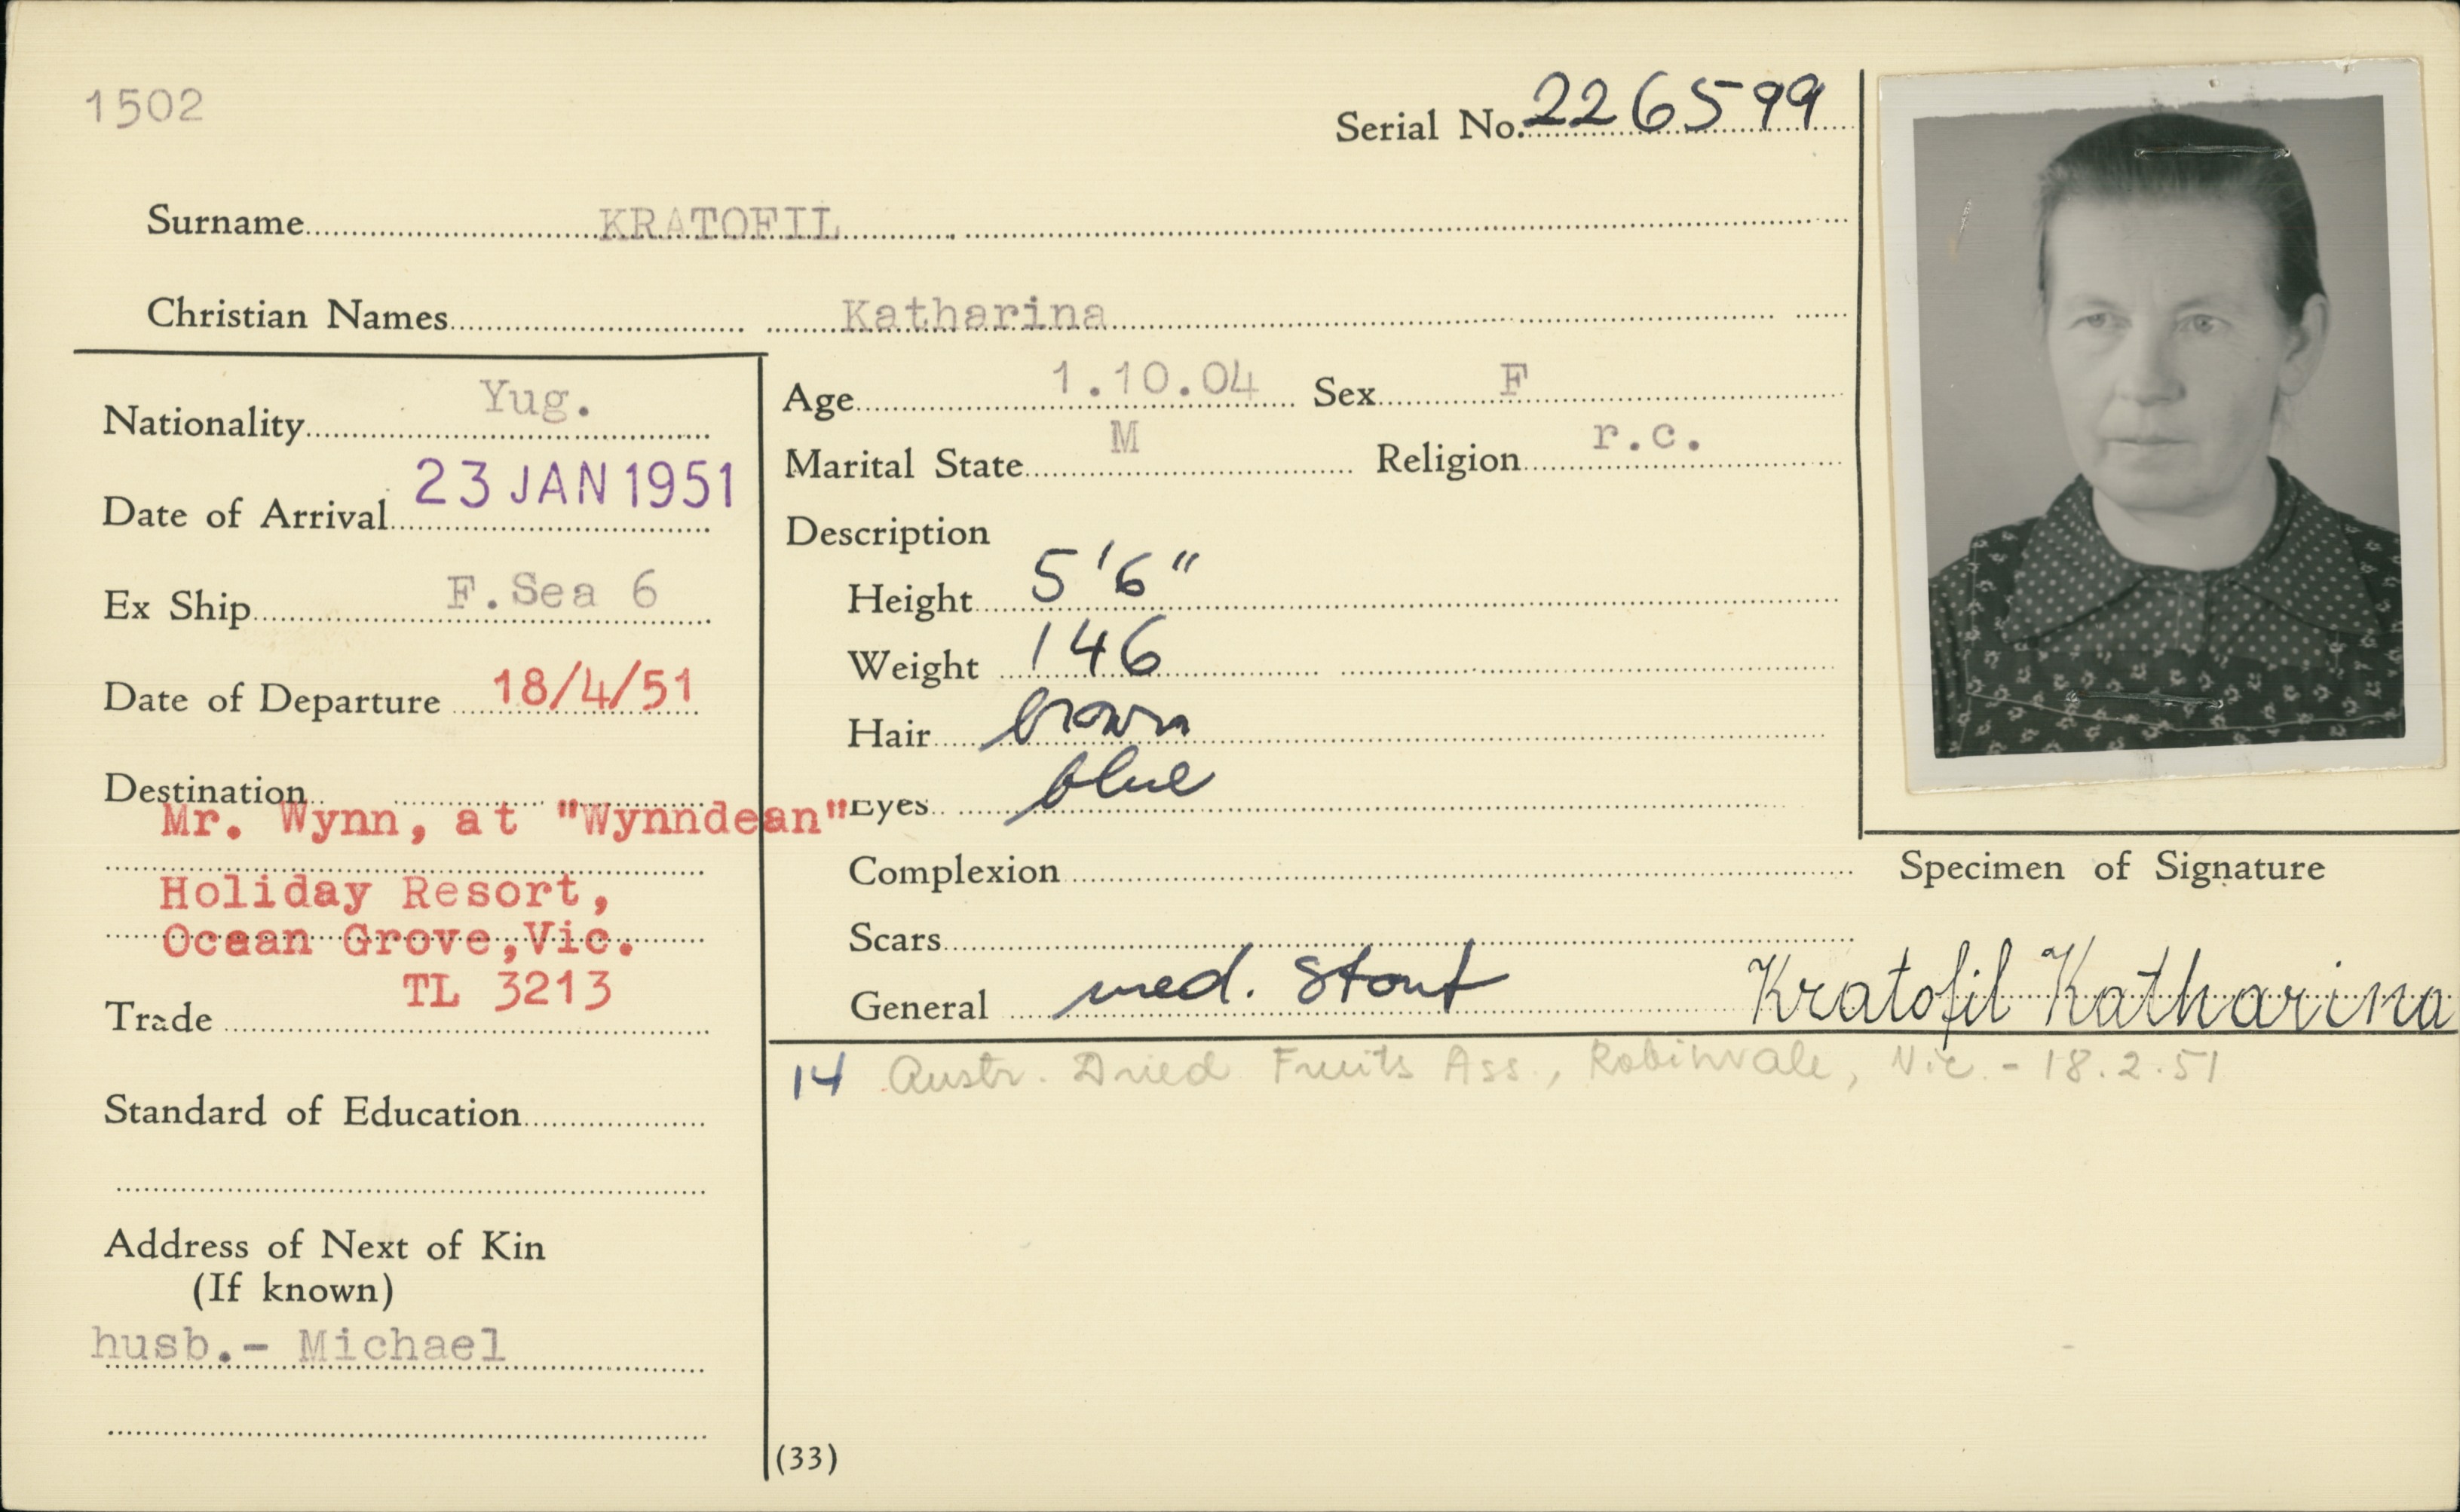 1502
Serial No. 226599
Surname KRATOFIL
Christian Names Katharina
Nationality Yug.
Date of Arrival 23 JAN 1951
Ex Ship F.Sea 6
Date of Departure 18/4/51
Destination
Mr. Wynn, at "Wynndean"
Holiday Resort,
Ocean Grove,Vic.
TL 3213
Trade
Standard of Education
Address of Next of Kin
(If known)
husb.- Michael
Age 1.10.04 Sex F
Marital State M Religion r.c.
Description
Height 5'6"
Weight 146
Hair brown
Eyes blue
Complexion
Scars
General med. stout
Specimen of Signature
Kratofil Katharina
14 Austr. Dried Fruits Ass., Robinvale, Vic. - 18.2.51
(33)